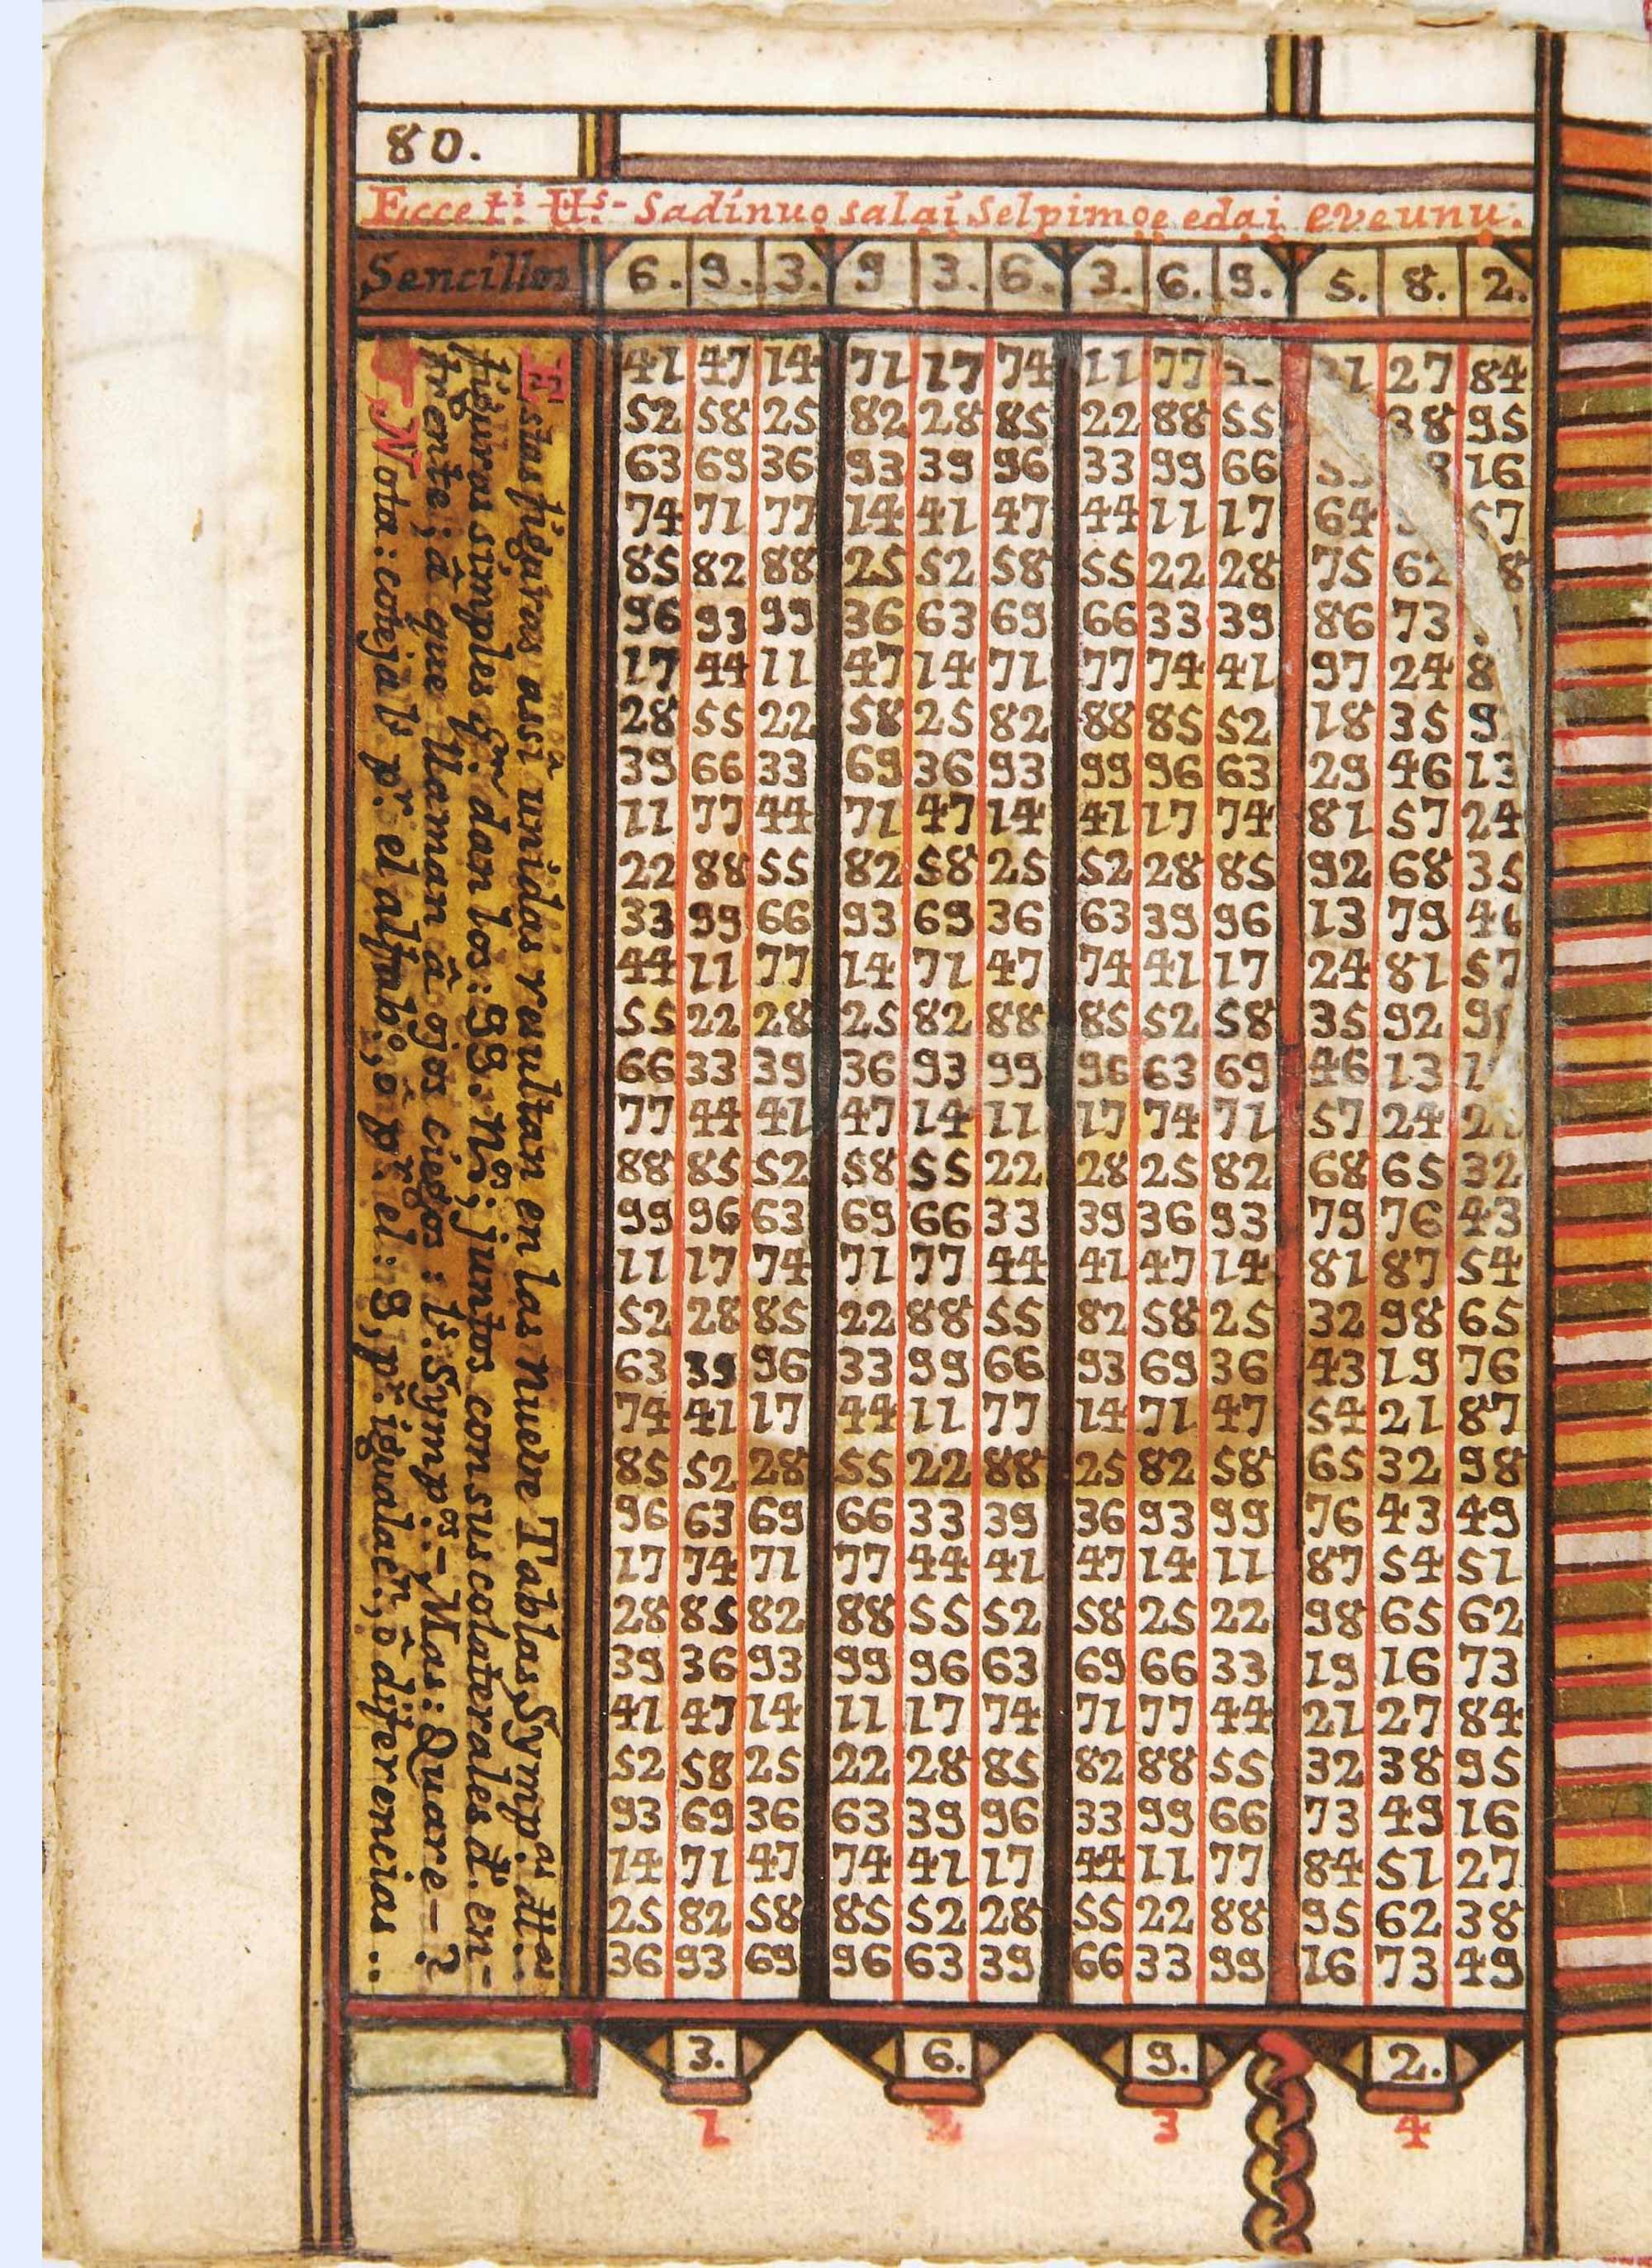 80.
Ecce ti. Hs.- Sadinuo salai selpimoe edai eveunu.
Sencillos 6. 9. 3. 9 3. 6. 3. 6. 9. 5. 8. 2.
Estas figuras assi unidas resultan en las nueve Tablas Symp.as dhas
figuras simples q.n dan los: 99. n.os; juntos con sus colaterales d. en-
frente; â que llaman â ojos ciegos: l.s Symp.os- Mas: Quare-?
Nota: cotejals p.r el alfabo., ô p.r el: 9, p.r igualaen., ô diferencias..
41 47 14 71 17 74 11 77 27 84
52 58 25 82 28 85 22 88 55 38 95
63 69 36 93 39 96 33 99 66 16
74 71 77 14 41 47 44 11 17 64 57
85 82 88 25 52 58 55 22 28 75 62 8
96 93 99 36 63 69 66 33 39 86 73
17 44 11 47 14 71 77 74 41 97 24 8
28 55 22 58 25 82 88 85 52 18 35 9
39 66 33 69 36 93 99 96 63 29 46 13
11 77 44 71 47 14 41 17 74 81 57 24
22 88 55 82 58 25 52 28 85 92 68 35
33 99 66 93 69 36 63 39 96 13 79 46
44 11 77 14 71 47 74 41 17 24 81 57
55 22 28 25 82 88 85 52 58 35 92 9
66 33 39 36 93 99 96 63 69 46 13 1
77 44 41 47 14 11 17 74 71 57 24 2
88 85 52 58 55 22 28 25 82 68 65 32
99 96 63 69 66 33 39 36 93 79 76 43
11 17 74 71 77 44 41 47 14 81 87 54
52 28 85 22 88 55 82 58 25 32 98 65
63 39 96 33 99 66 93 69 36 43 19 76
74 41 17 44 11 77 14 71 47 54 21 87
85 52 28 55 22 88 25 82 58 65 32 98
96 63 69 66 33 39 36 93 99 76 43 49
17 74 71 77 44 41 47 14 11 87 54 51
28 85 82 88 55 52 58 25 22 98 65 62
39 36 93 99 96 63 69 66 33 19 16 73
41 47 14 11 17 74 71 77 44 21 27 84
52 58 25 22 28 85 82 88 55 32 38 95
93 69 36 63 39 96 33 99 66 73 49 16
14 71 47 74 41 17 44 11 77 84 51 27
25 82 58 85 52 28 55 22 88 95 62 38
36 93 69 96 63 39 66 33 99 16 73 49
3. 6. 9. 2.
1 2 3 4